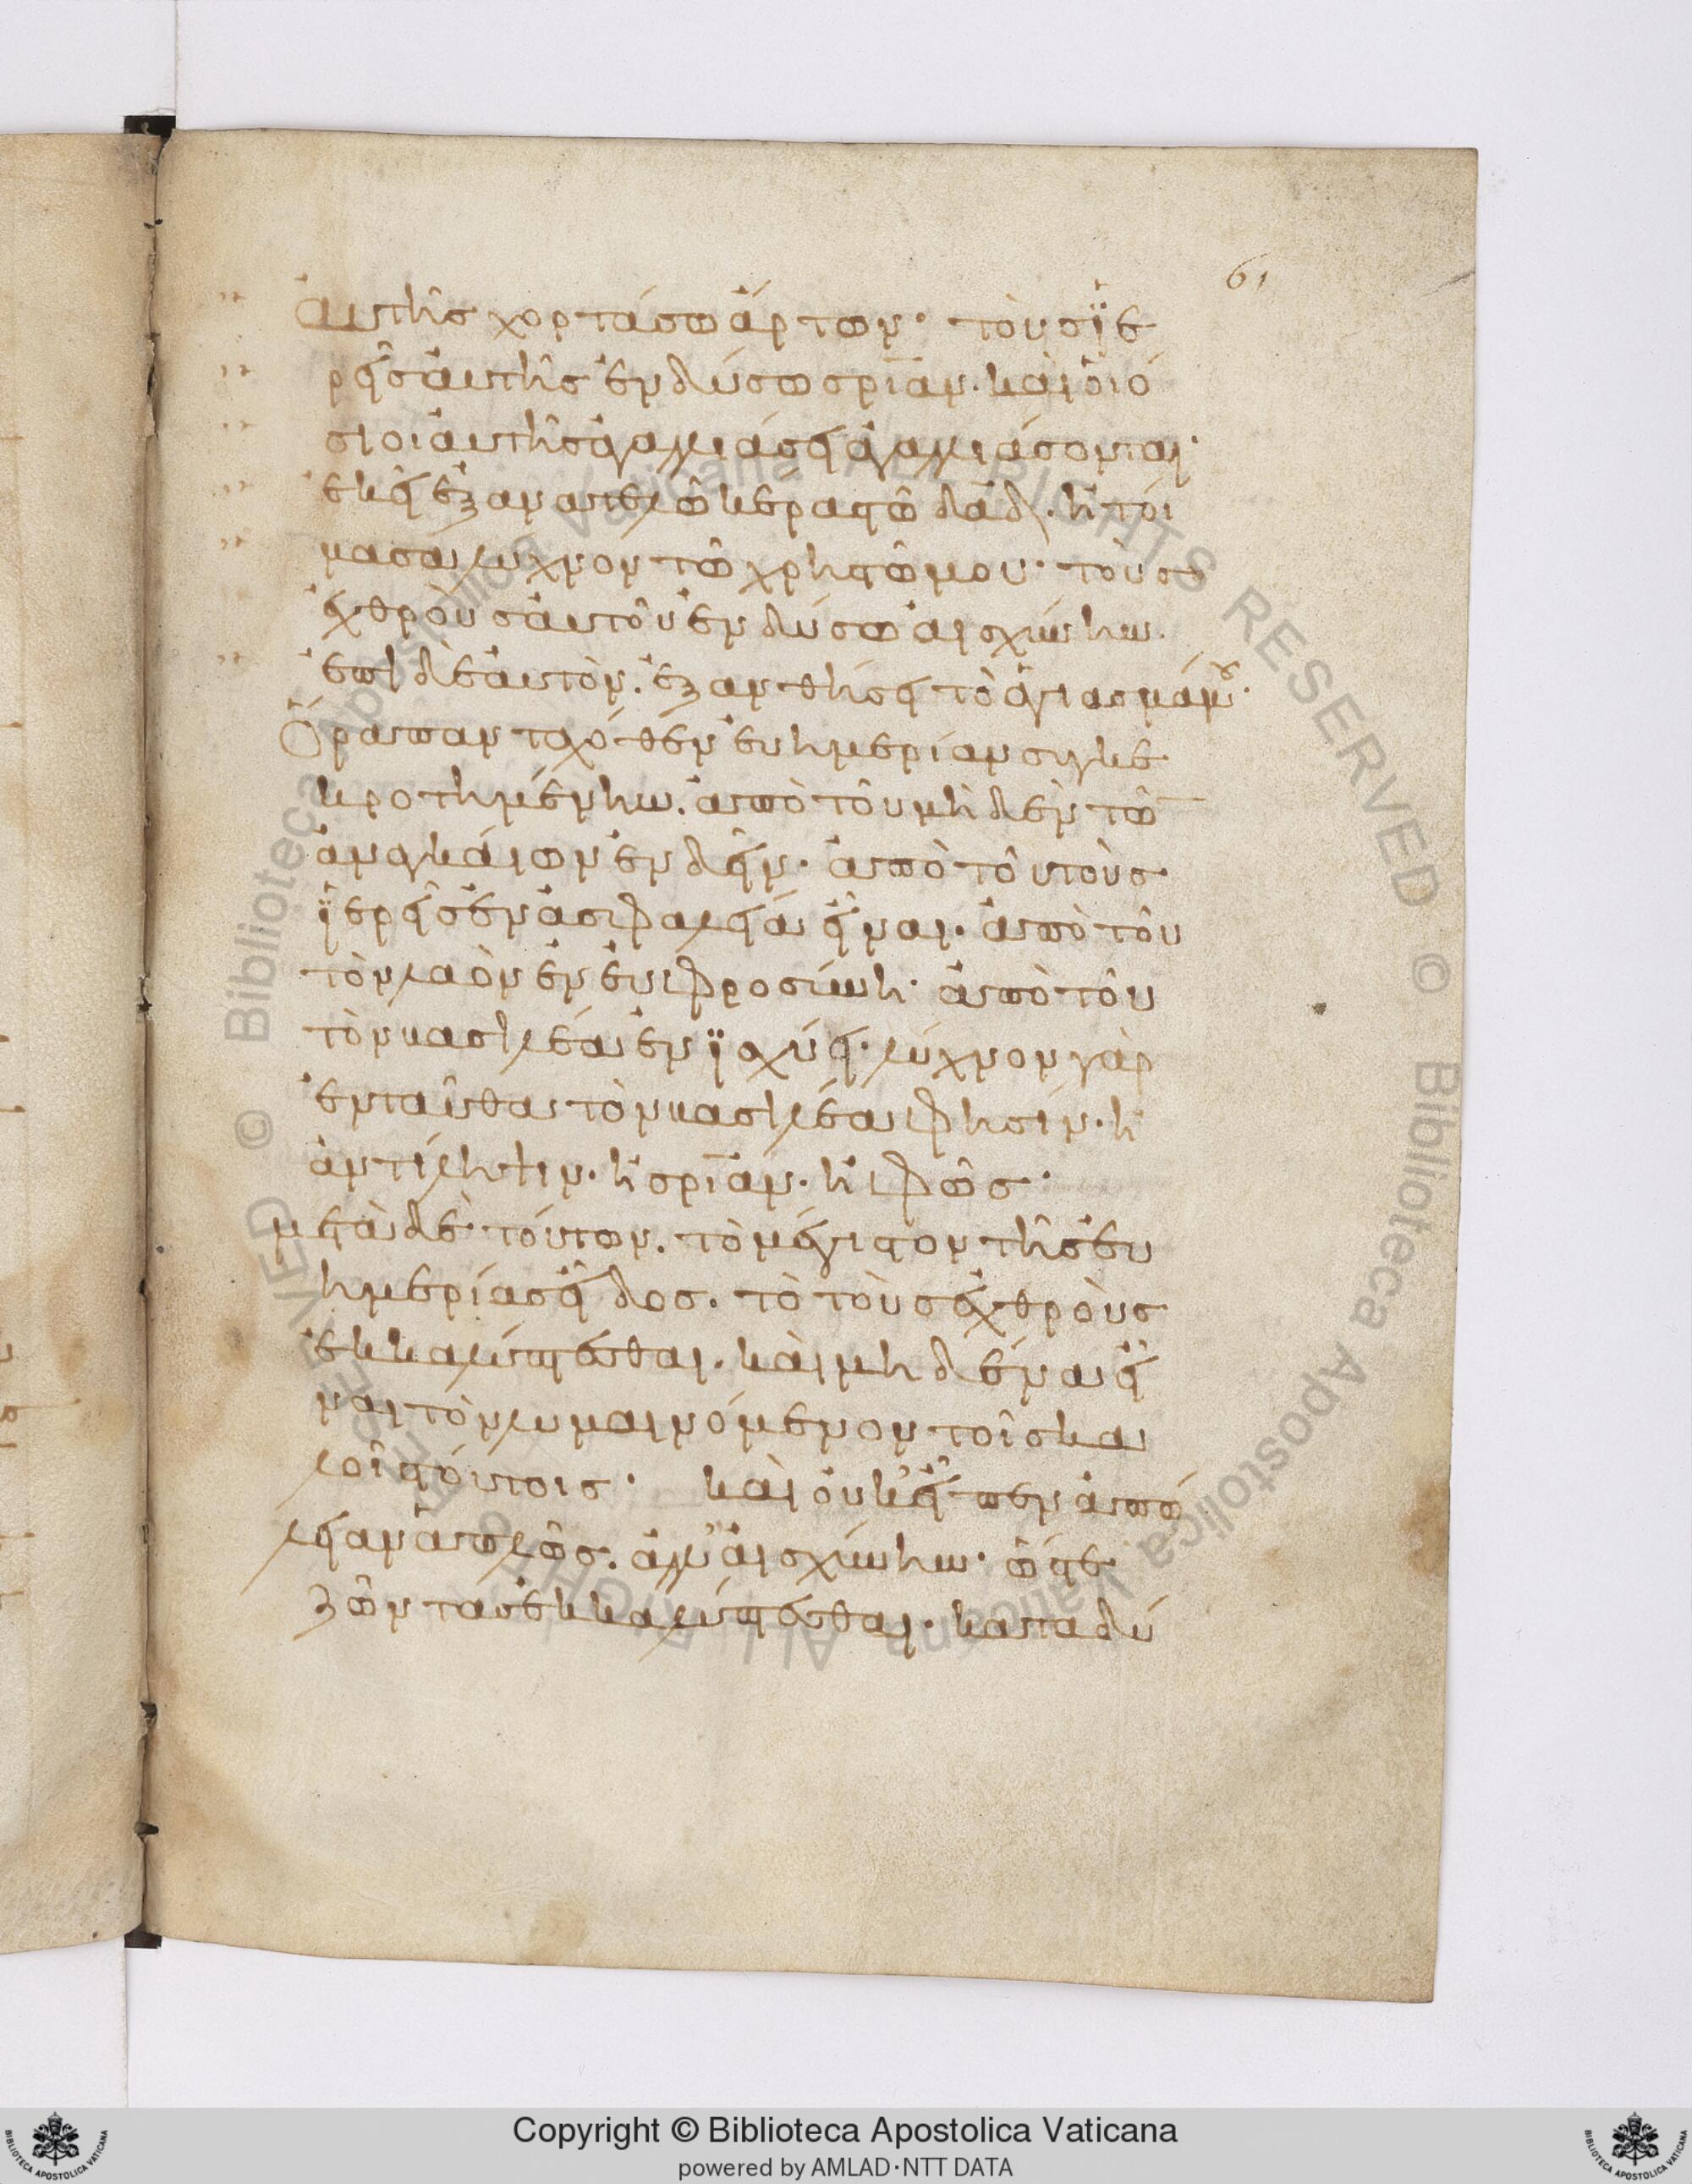 61
αὐτῆς χορτάσω ἄρτων· τοὺς ἱε
ρεῖς αὐτῆς ἐνδύσω σ̅ρ̅ι̅α̅ν· καὶ οἱ ὅ
σιοι αὐτῆς ἀγαλλιάσει ἀγαλλιάσονται·
ἐκεῖ ἐξανατελῶ κέρας τῶ δα̅δ· ἡτοί
μασα λύχνον τῶ χριστῶ μου· τοὺς
ἐχθροὺς αὐτοῦ ἐνδύσω αἰσχύνην·
ἐπὶ δὲ αὐτὸν· ἐξανθήσει τὸ ἁγίασμά μου·
Ὅρα πανταχόθεν εὐημερίαν συγκε
κροτημένην· ἀπὸ τοῦ μηδὲν τῶν
ἀναγκαίων ἐνδεῖν· ἀπὸ τοῦ τοὺς
ἱερεῖς ἐν ἀσφαλείᾳ εἶναι· ἀπὸ τοῦ
τὸν λαὸν ἐν εὐφροσύνη· ἀπὸ τοῦ
τὸν βασιλέα ἐν ἰσχύει· λύχνον γὰρ
ἐνταῦθα τὸν βασιλέα φησίν· ἢ
ἀντίληψιν· ἢ σ̅ρ̅ι̅α̅ν· ἢ φῶς·
μετὰ δὲ τούτων· τὸ μέγιστον τῆς εὐ
ημερίας εἶδος· τὸ τοὺς ἐχθροὺς
ἐκκαλύπτεσθαι· καὶ μηδένα εἶ
ναι τὸν λυμαινόμενον τοῖς κα
λοῖς τούτοις· καὶ οὐκ εἶπεν ἀπώ
λειαν ἁπλῶς· ἀλλ' αἰσχύνην· ὥστε
ζῶντας ἐκκαλύπτεσθαι· καταδύ
Copyright © Biblioteca Apostolica Vaticana
powered by AMLAD·NTT DATA